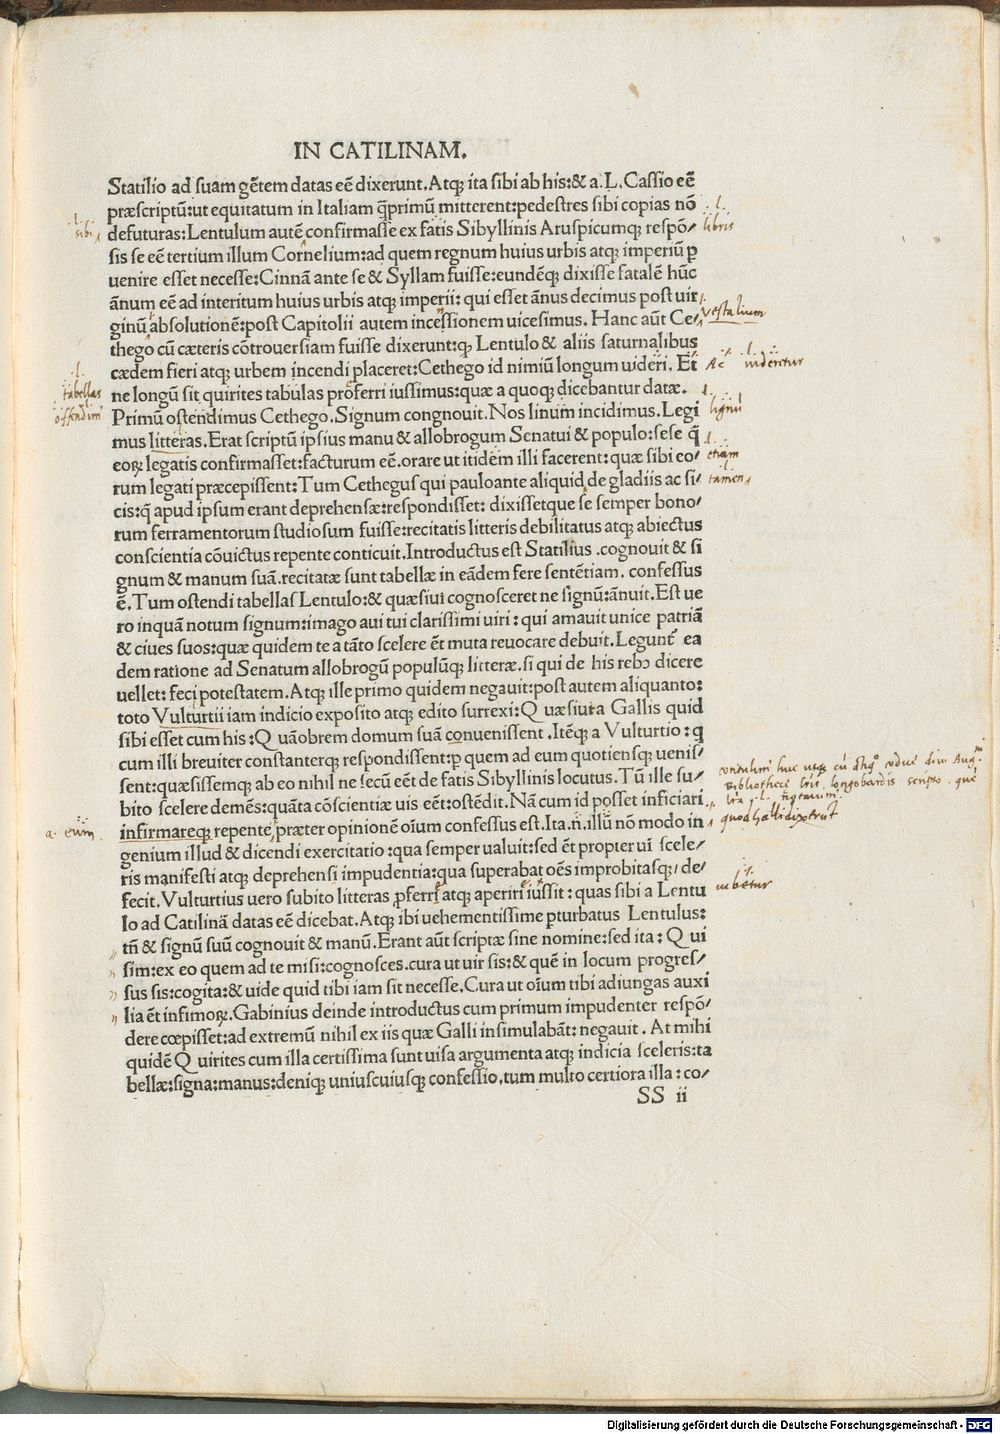 IN CATILINAM.
Statilio ad suam gẽtem datas eẽ dixerunt. Atqꝫ ita sibi ab his:& a. L. Cassio eẽ
præscriptũ:ut equitatum in Italiam q̃primũ mitterent:pedestres sibi copias nõ
defuturas:Lentulum autẽ confirmasse ex fatis Sibyllinis Aruspicumqꝫ respõ/
sis se eẽ tertium illum Cornelium:ad quem regnum huius urbis atqꝫ imperiũ ꝑ
uenire esset necesse:Cinnã ante se & Syllam fuisse:eundẽqꝫ dixisse fatalẽ hũc
ãnum eẽ ad interitum huius urbis atqꝫ imperii: qui esset ãnus decimus post uir
ginũ absolutionẽ:post Capitolii autem incessionem uicesimus. Hanc aũt Ce/
thego cũ cæteris cõtrouersiam fuisse dixerunt:qꝫ Lentulo & aliis saturnalibus
cædem fieri atqꝫ urbem incendi placeret:Cethego id nimiũ longum uideri. Et
ne longũ sit quirites tabulas proferri iussimus:quæ a quoqꝫ dicebantur datæ.
Primũ ostendimus Cethego. Signum congnouit. Nos linum incidimus. Legi
mus litteras. Erat scriptũ ipsius manu & allobrogum Senatui & populo:sese q̃
eoꝝ legatis confirmasset:facturum eẽ. orare ut itidem illi facerent: quæ sibi eo/
rum legati præcepissent: Tum Cethegus qui pauloante aliquid de gladiis ac si/
cis:q̃ apud ipsum erant deprehensæ:respondisset: dixissetque se semper bono/
rum ferramentorum studiosum fuisse:recitatis litteris debilitatus atqꝫ abiectus
conscientia cõuictus repente conticuit. Introductus est Statilius .cognouit & si
gnum & manum suã.recitatæ sunt tabellæ in eãdem fere sentẽtiam. confessus
ẽ. Tum ostendi tabellas Lentulo:& quæsiui cognosceret ne signũ:ãnuit. Est ue
ro inquã notum signum:imago aui tui clarissimi uiri : qui amauit unice patriã
& ciues suos:quæ quidem te a tãto scelere ẽt muta reuocare debuit. Legunt᷑ ea
dem ratione ad Senatum allobrogũ populũqꝫ litteræ. si qui de his rebꝰ dicere
uellet: feci potestatem. Atqꝫ ille primo quidem negauit:post autem aliquanto:
toto Vulturtii iam indicio exposito atqꝫ edito surrexi: Q uæsiuit a Gallis quid
sibi esset cum his : Q uãobrem domum suã conuenissent . Itẽqꝫ a Vulturtio : q
cum illi breuiter constanterqꝫ respondissent:ꝑ quem ad eum quotiensqꝫ uenis/
sent:quæsissemqꝫ ab eo nihil ne secũ eẽt de fatis Sibyllinis locutus. Tũ ille su/
bito scelere demẽs:quãta cõscientiæ uis eẽt:ostẽdit. Nã cum id posset inficiari
infirmareqꝫ repente præter opinionẽ oĩum confessus est. Ita.ñ.illũ nõ modo in
genium illud & dicendi exercitatio :qua semper ualuit:sed ẽt propter ui scele/
ris manifesti atqꝫ deprehensi impudentia:qua superabat oẽs improbitasqꝫ, de/
fecit. Vulturtius uero subito litteras ꝓferri atqꝫ aperiri iussit : quas sibi a Lentu
lo ad Catilinã datas eẽ dicebat. Atqꝫ ibi uehementissime ꝑturbatus Lentulus:
tñ & signũ suũ cognouit & manũ. Erant aũt scriptæ sine nomine:sed ita: Q ui
sim:ex eo quem ad te misi:cognosces.cura ut uir sis:& quẽ in locum progres/
sus sis:cogita:& uide quid tibi iam sit necesse. Cura ut oĩum tibi adiungas auxi
lia ẽt infimoꝝ. Gabinius deinde introductus cum primum impudenter respõ/
dere cœpisset:ad extremũ nihil ex iis quæ Galli insimulabãt: negauit . At mihi
quidẽ Q uirites cum illa certissima sunt uisa argumenta atqꝫ indicia sceleris:ta
bellæ:signa:manus:deniqꝫ uniuscuiusqꝫ confessio.tum multo certiora illa : co/
SS ii
.l. sibi
.l. tabellas
offendim᷑
a. eum
.l.
libris
l. vestalium
Ac .l. uideretur
l. lignũ
l. etiam
l. tamen
quod hæc alii dixerunt
iubetur
Digitalisierung gefördert durch die Deutsche Forschungsgemeinschaft - DFG